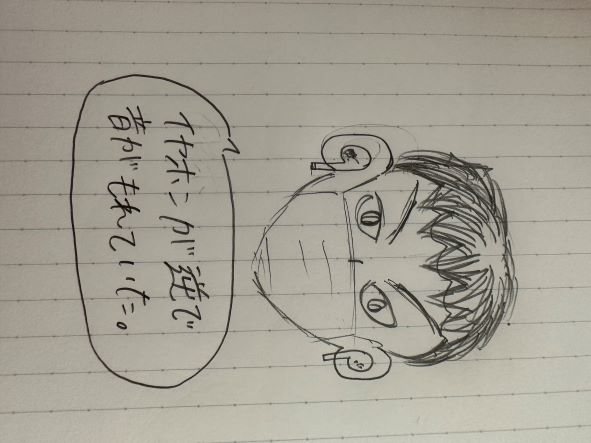 イヤホンが逆で
音がもれていた。